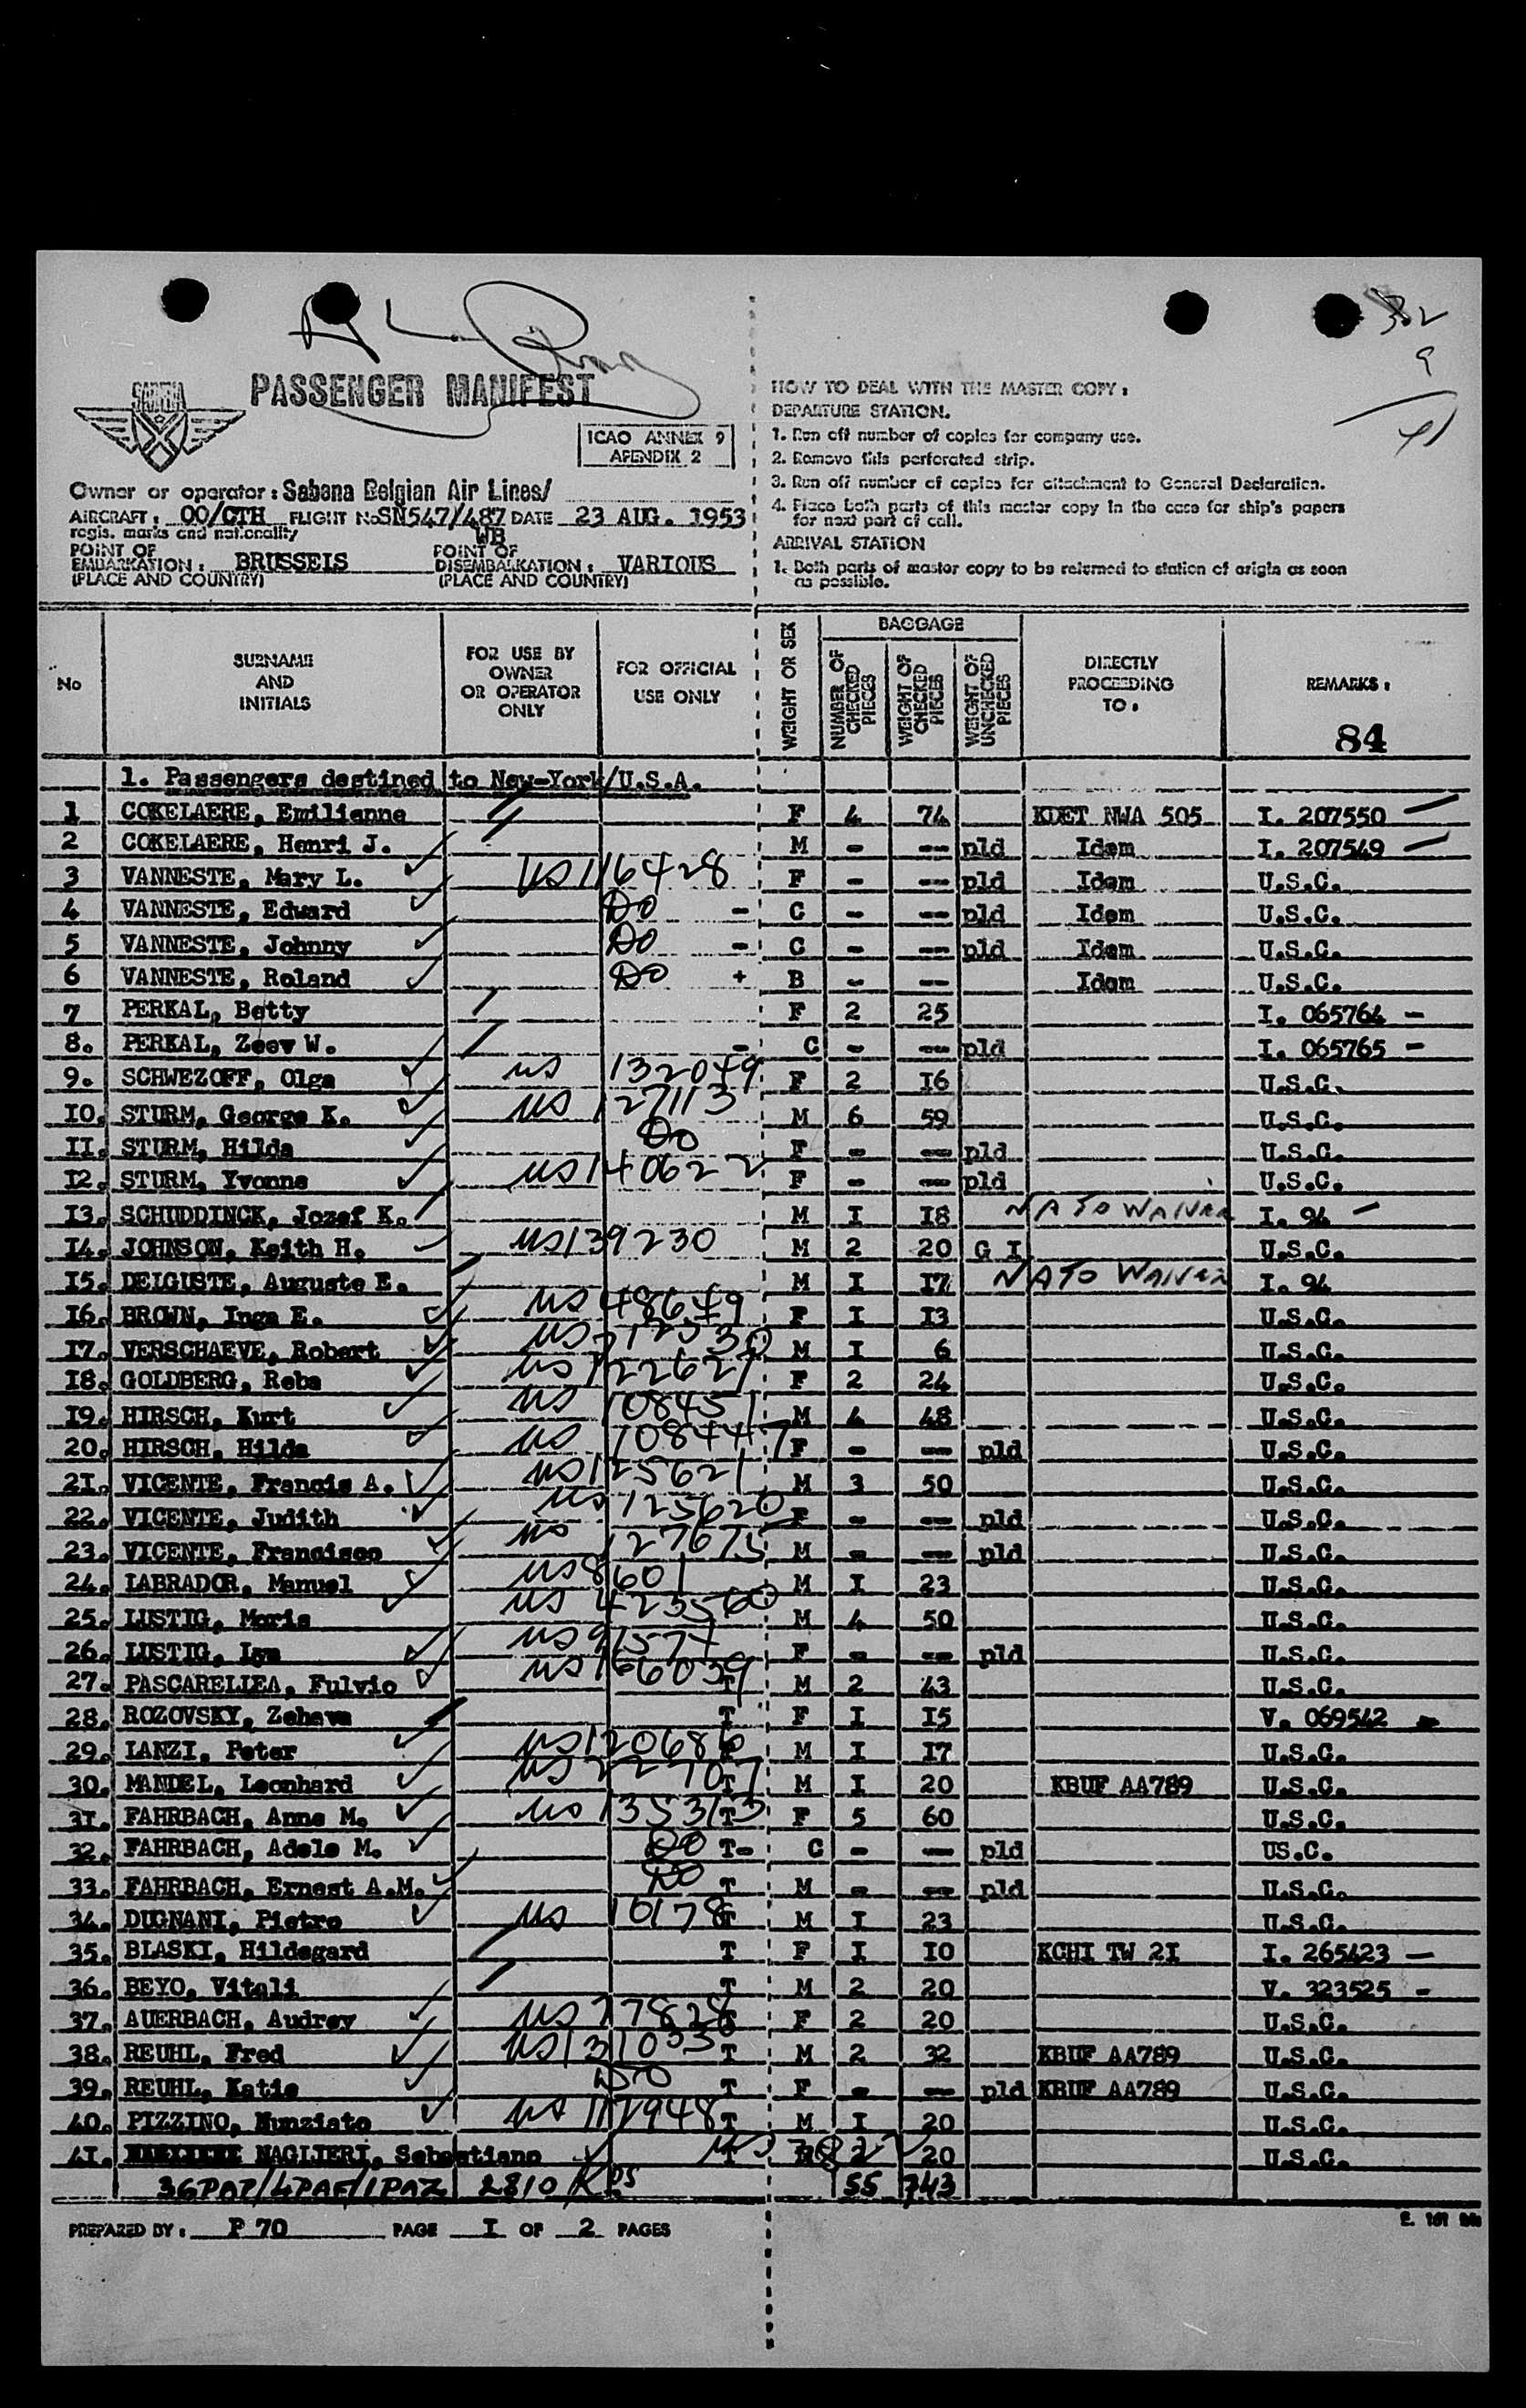 32
9
41
SABENA
PASSENGER MANIFEST
ICAO ANNEX 9
APENDIX 2
Owner or operator : Sabena Belgian Air Lines/
AIRCRAFT : OO/CTH FLIGHT No SN547/487 DATE 23 AUG. 1953
regis. marks and nationality WB
POINT OF EMBARKATION : BRUSSELS POINT OF DISEMBARKATION : VARIOUS
(PLACE AND COUNTRY) (PLACE AND COUNTRY)
HOW TO DEAL WITH THE MASTER COPY :
DEPARTURE STATION.
1. Run off number of copies for company use.
2. Remove this perforated strip.
3. Run off number of copies for attachment to General Declaration.
4. Place both parts of this master copy in the case for ship's papers
for next port of call.
ARRIVAL STATION
1. Both parts of master copy to be returned to station of origin as soon
as possible.
No SURNAME AND INITIALS FOR USE BY OWNER OR OPERATOR ONLY FOR OFFICIAL USE ONLY WEIGHT OR SEX BAGGAGE NUMBER OF CHECKED PIECES WEIGHT OF CHECKED PIECES WEIGHT OF UNCHECKED PIECES DIRECTLY PROCEEDING TO : REMARKS :
84
1. Passengers destined to New-York/U.S.A.
1 COKELAERE, Emilienne F 4 74 KDET NWA 505 I. 207550 —
2 COKELAERE, Henri J. M - -- pld Idem I. 207549 —
3 VANNESTE, Mary L. US 116428 F - -- pld Idem U.S.C.
4 VANNESTE, Edward DO - C - -- pld Idem U.S.C.
5 VANNESTE, Johnny DO - C - -- pld Idem U.S.C.
6 VANNESTE, Roland DO + B - -- Idem U.S.C.
7 PERKAL, Betty F 2 25 I. 065764 -
8. PERKAL, Zeev W. - C - -- pld I. 065765 -
9. SCHWEZOFF, Olga US 132049 F 2 I6 U.S.C.
I0. STURM, George K. US 127113 M 6 59 U.S.C.
II. STURM, Hilda DO F - -- pld U.S.C.
I2. STURM, Yvonne US 140622 F - -- pld U.S.C.
I3. SCHUDDINCK, Jozef K. M I I8 NATO WAIVER I. 94 -
I4. JOHNSON, Keith H. US 139230 M 2 20 G I U.S.C.
I5. DELGUSTE, Auguste E. M I I7 NATO WAIVER I. 94
I6. BROWN, Inge E. US 48649 F I I3 U.S.C.
I7. VERSCHAEVE, Robert US M I 6 U.S.C.
I8. GOLDBERG, Reba US 122627 F 2 24 U.S.C.
I9. HIRSCH, Kurt US 108451 M 4 48 U.S.C.
20. HIRSCH, Hilde US 108447 F - -- pld U.S.C.
2I. VICENTE, Francis A. US 125621 M 3 50 U.S.C.
22. VICENTE, Judith US 125620 F - -- pld U.S.C.
23. VICENTE, Francisco US 127675 M - -- pld U.S.C.
24. LABRADOR, Manuel US 8601 M I 23 U.S.C.
25. LUSTIG, Moris US 423560 M 4 50 U.S.C.
26. LUSTIG, Lya US 91577 F - -- pld U.S.C.
27. PASCARELLEA, Fulvio US 166039 T M 2 43 U.S.C.
28. ROZOVSKY, Zehava T F I I5 V. 069542 -
29. LANZI, Peter US 120686 M I I7 U.S.C.
30. MANDEL, Leonhard US 222707 T M I 20 KBUF AA789 U.S.C.
3I. FAHRBACH, Anne M. US 135313 T F 5 60 U.S.C.
32. FAHRBACH, Adele M. DO T- C - -- pld US.C.
33. FAHRBACH, Ernest A.M. DO T M - -- pld U.S.C.
34. DUGNANI, Pietro US 10178 T M I 23 U.S.C.
35. BLASKI, Hildegard T F I I0 KCHI TW 2I I. 265423 —
36. BEYO, Vitali T M 2 20 V. 323525 -
37. AUERBACH, Audrey US 77828 T F 2 20 U.S.C.
38. REUHL, Fred US 131035 T M 2 32 KBUF AA789 U.S.C.
39. REUHL, Katie DO T F - -- pld KBUF AA789 U.S.C.
40. PIZZINO, Nunziato US T M I 20 U.S.C.
4I. NAGLIERI, Sebastiano US T 2 20 U.S.C.
36PAP/4PAF/1PAZ 2810 Kgs 55 743
PREPARED BY : P 70 PAGE I OF 2 PAGES